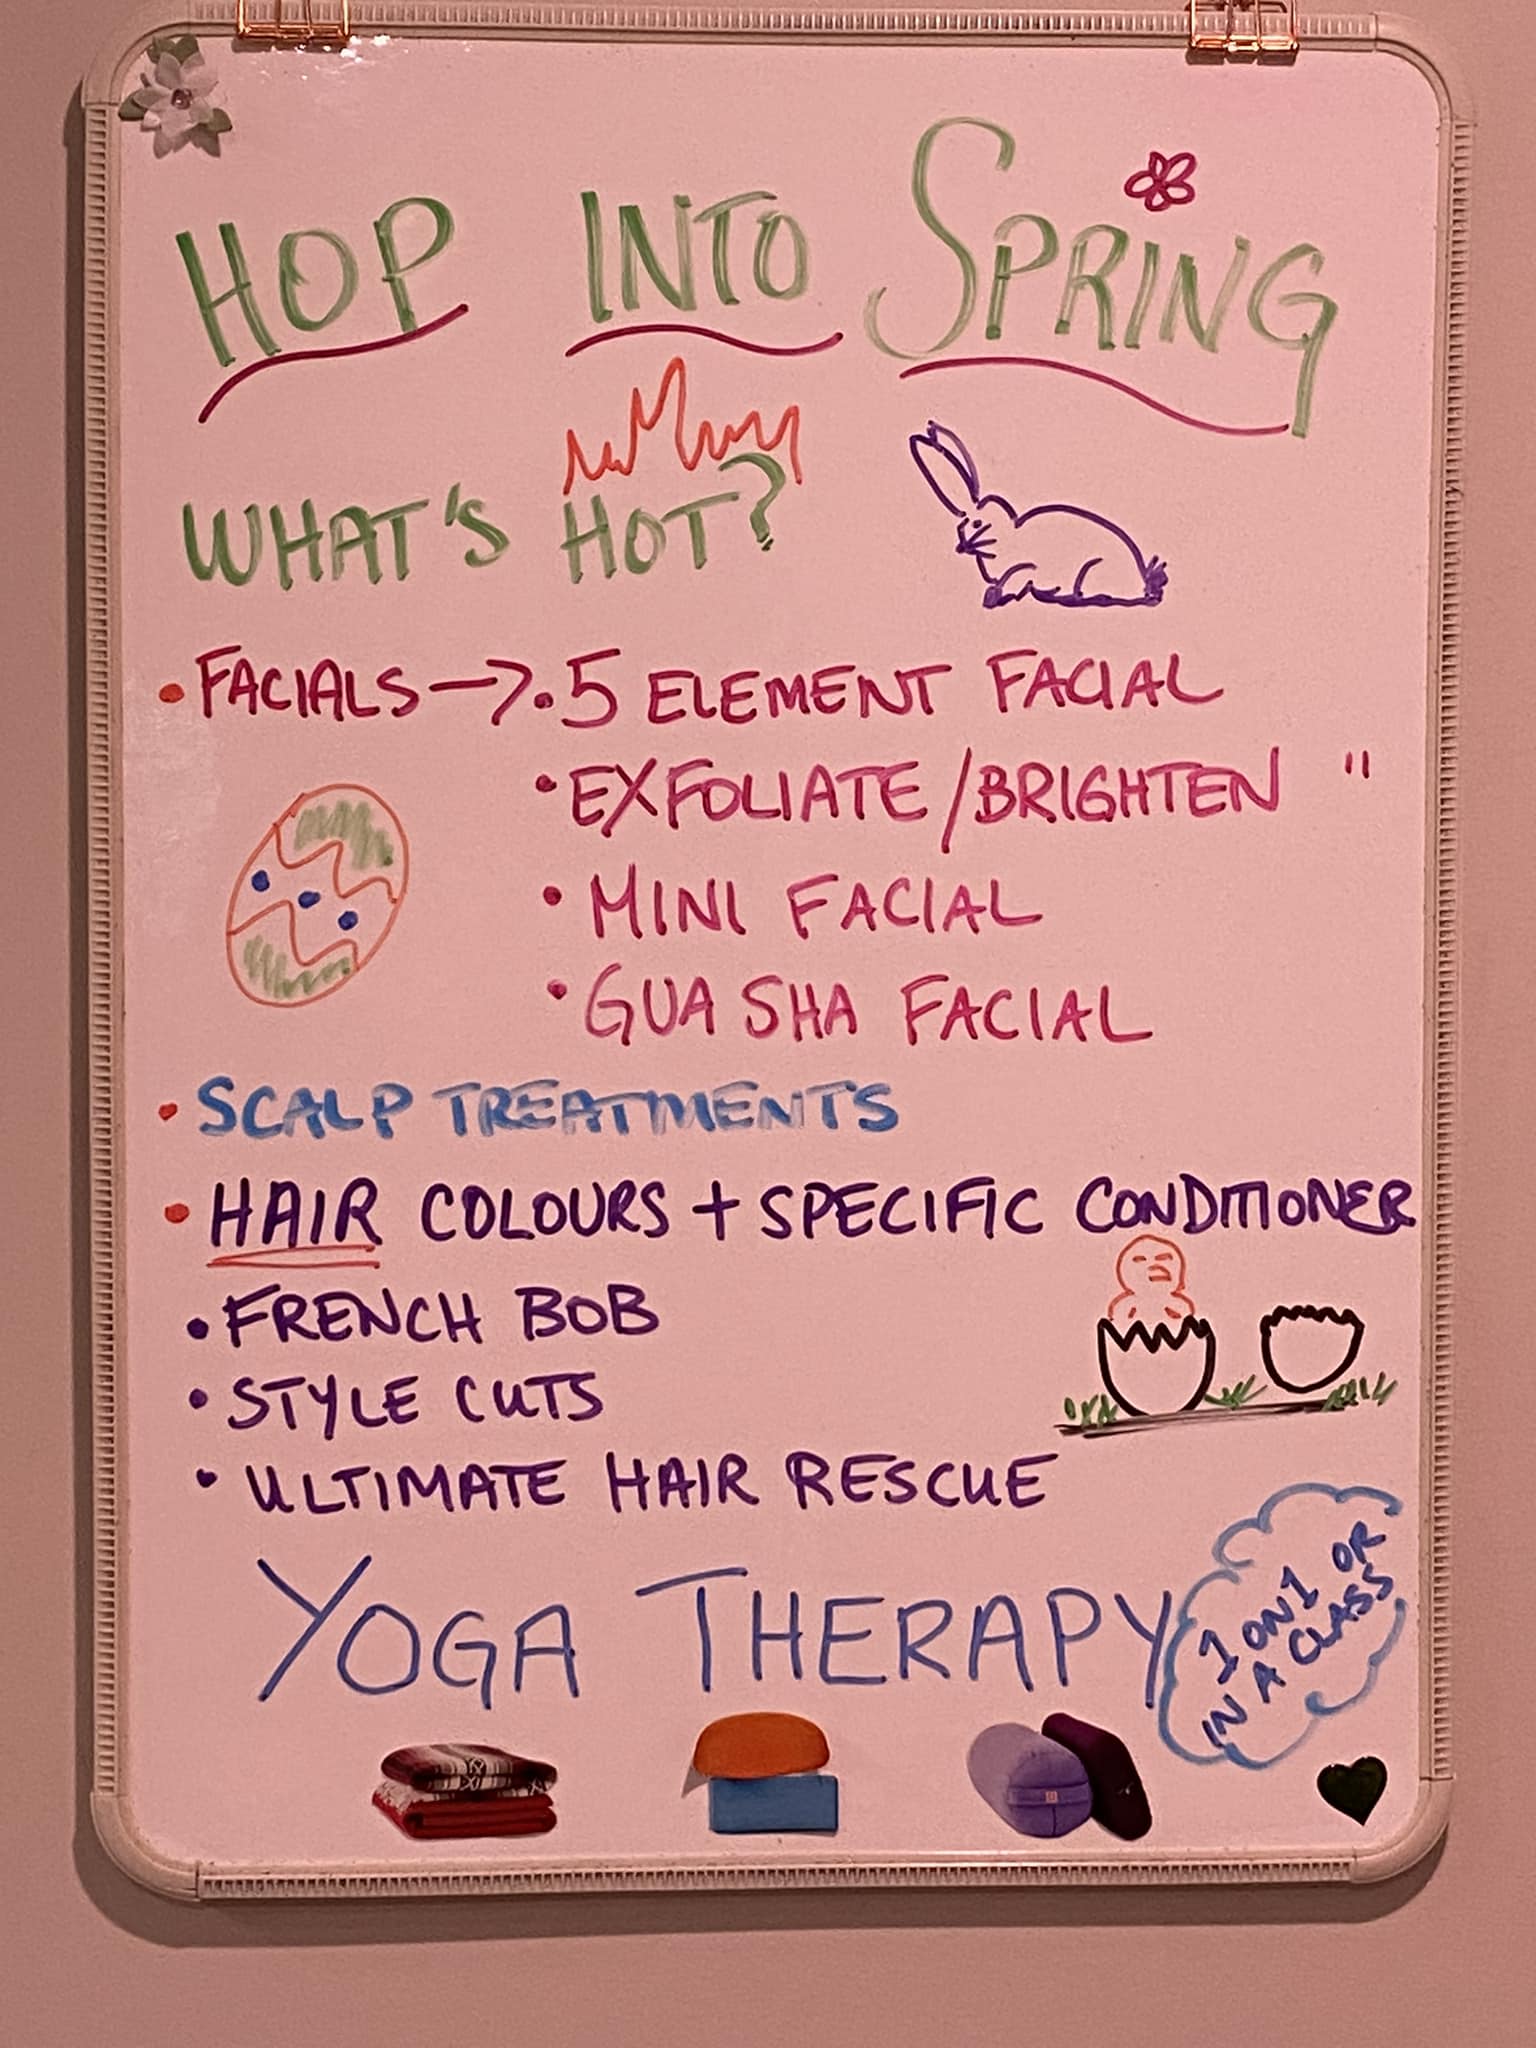 HOP INTO SPRING
WHAT'S HOT?
• FACIALS → • 5 ELEMENT FACIAL
• EXFOLIATE / BRIGHTEN "
• MINI FACIAL
• GUA SHA FACIAL
• SCALP TREATMENTS
• HAIR COLOURS + SPECIFIC CONDITIONER
• FRENCH BOB
• STYLE CUTS
• ULTIMATE HAIR RESCUE
YOGA THERAPY
1 ON 1 OR
IN A CLASS